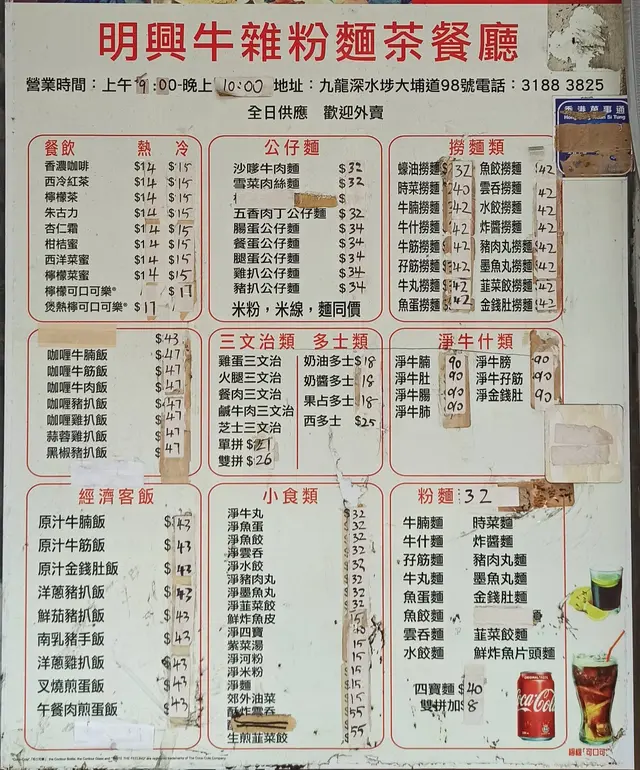 明興牛雜粉麵茶餐廳
營業時間：上午9:00-晚上10:00 地址：九龍深水埗大埔道98號電話：3188 3825
全日供應 歡迎外賣
香港萬事通
餐飲 熱 冷
香濃咖啡 $14 $15
西冷紅茶 $14 $15
檸檬茶 $14 $15
朱古力 $14 $15
杏仁霜 $14 $15
柑桔蜜 $14 $15
西洋菜蜜 $14 $15
檸檬菜蜜 $14 $15
檸檬可口可樂® $17
煲熱檸可口可樂® $17
公仔麵
沙嗲牛肉麵 $32
雪菜肉絲麵 $32
五香肉丁公仔麵 $32
腸蛋公仔麵 $34
餐蛋公仔麵 $34
腿蛋公仔麵 $34
雞扒公仔麵 $34
豬扒公仔麵 $34
米粉，米線，麵同價
撈麵類
蠔油撈麵 $32 魚餃撈麵 $42
時菜撈麵 $40 雲吞撈麵 $42
牛腩撈麵 $42 水餃撈麵 $42
牛什撈麵 $42 炸醬撈麵 $42
牛筋撈麵 $42 豬肉丸撈麵 $42
孖筋撈麵 $42 墨魚丸撈麵 $42
牛丸撈麵 $42 韮菜餃撈麵 $42
魚蛋撈麵 $42 金錢肚撈麵 $42
$43
咖喱牛腩飯 $47
咖喱牛筋飯 $47
咖喱牛肉飯 $47
咖喱豬扒飯 $47
咖喱雞扒飯 $47
蒜蓉雞扒飯 $47
黑椒豬扒飯 $47
三文治類 多士類
雞蛋三文治 奶油多士 $18
火腿三文治 奶醬多士 $18
餐肉三文治 果占多士 $18
鹹牛肉三文治 西多士 $25
芝士三文治
單拼 $21
雙拼 $26
淨牛什類
淨牛腩 90 淨牛膀 90
淨牛肚 90 淨牛孖筋 90
淨牛腸 90 淨金錢肚 90
淨牛肺 90
經濟客飯
原汁牛腩飯 $43
原汁牛筋飯 $43
原汁金錢肚飯 $43
洋蔥豬扒飯 $43
鮮茄豬扒飯 $43
南乳豬手飯 $43
洋蔥雞扒飯 $43
叉燒煎蛋飯 $43
午餐肉煎蛋飯 $43
小食類
淨牛丸 $32
淨魚蛋 $32
淨魚餃 $32
淨雲吞 $32
淨水餃 $32
淨豬肉丸 $32
淨墨魚丸 $32
淨韮菜餃 $32
鮮炸魚皮 $15
淨四寶 $40
紫菜湯 $15
淨河粉 $15
淨米粉 $15
淨麵 $15
郊外油菜 $15
酥炸雲吞 $55
生煎韮菜餃 $55
粉麵：32
牛腩麵 時菜麵
牛什麵 炸醬麵
孖筋麵 豬肉丸麵
牛丸麵 墨魚丸麵
魚蛋麵 金錢肚麵
魚餃麵
雲吞麵 韮菜餃麵
水餃麵 鮮炸魚片頭麵
四寶麵 $40
雙拼加 $8
Coca-Cola